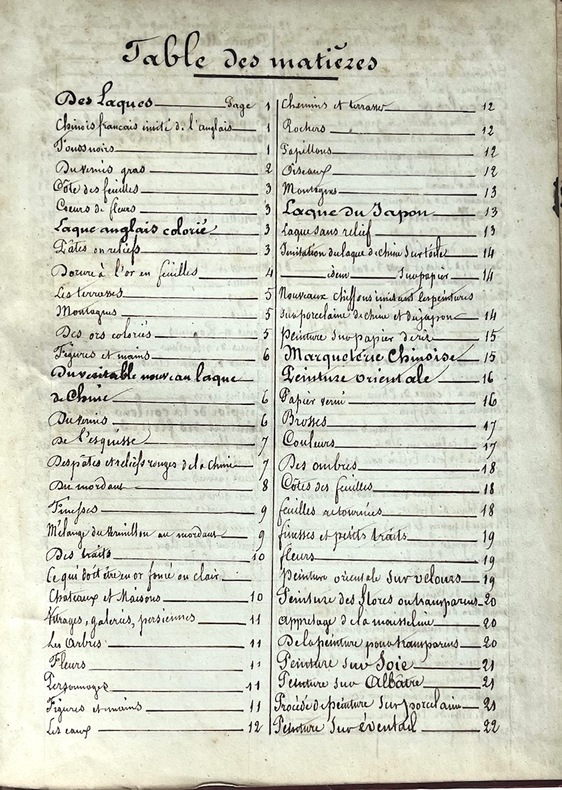 Table des matières
Des Laques Page 1
Chinois français imité de l'anglais 1
Fonds noirs 1
Du vernis gras 2
Côte des feuilles 3
Cœurs de fleurs 3
Laque anglais colorié 3
Pâtes ou reliefs 3
Dorure à l'or en feuilles 4
Les terrasses 5
Montagnes 5
Des ors coloriés 5
Figures et mains 6
Du véritable nouveau laque
de Chine 6
Du vernis 6
De l'esquisse 7
Des pâtes et reliefs rouges de la Chine 7
Du mordant 8
Finesses 9
Mélange du Vermillon au mordant 9
Des traits 10
Ce qui doit être en or foncé ou clair
Chateaux et Maisons 10
Vitrages, galeries, persiennes 11
Les Arbres 11
Fleurs 11
Personnages 11
Figures et mains 11
Les eaux 12
Chemins et terrasses 12
Rochers 12
Papillons 12
Oiseaux 12
Montagnes 13
Laque du Japon 13
Laque sans relief 13
Imitation du laque de Chine sur toile 14
idem Sur papier 14
Nouveaux chiffons imitant les peintures
sur porcelaine de chine et du japon 14
Peinture sur papier de riz 15
Marqueterie Chinoise 15
Peinture orientale 16
Papier verni 16
Brosses 17
Couleurs 17
Des ombres 18
Côtes des feuilles 18
feuilles retournées 18
finesses et petits traits 19
fleurs 19
Peinture orientale sur velours 19
Peinture des stores ou transparens 20
Appretage de la mousseline 20
De la peinture pour transparens 20
Peinture sur Soie 21
Peinture sur Albâtre 21
Procédé de peinture sur porcelaine 21
Peinture sur éventail 22